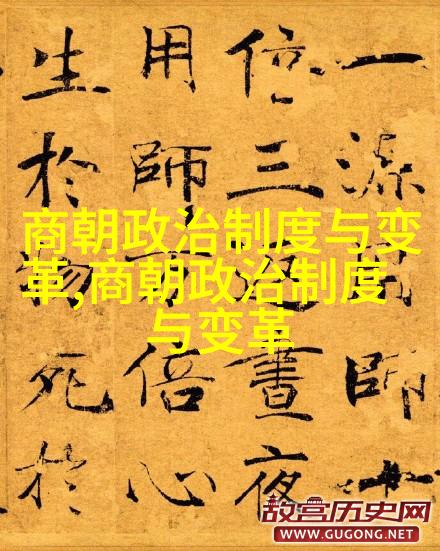 一源用師十
倍三返晝夜
用師万倍心
生於物死於
商朝政治制度与变
革,商朝政治制度
与变革
故宫历史网
WWW.GUGONG.NET